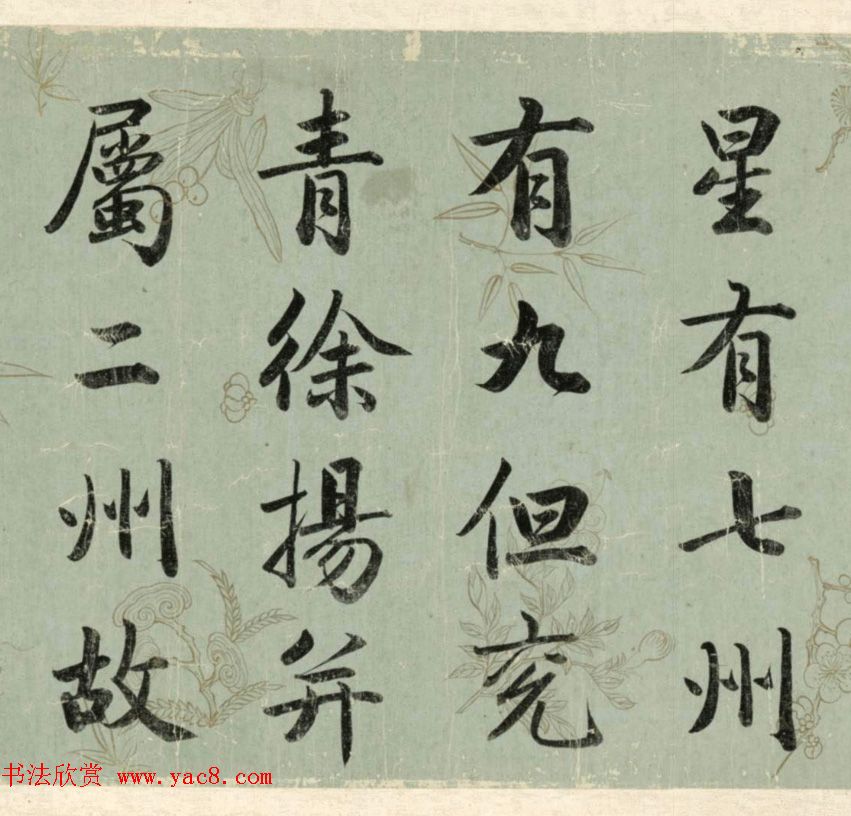 星有七州
有九但兖
青徐揚并
屬二州故
书法欣赏 www.yac8.com